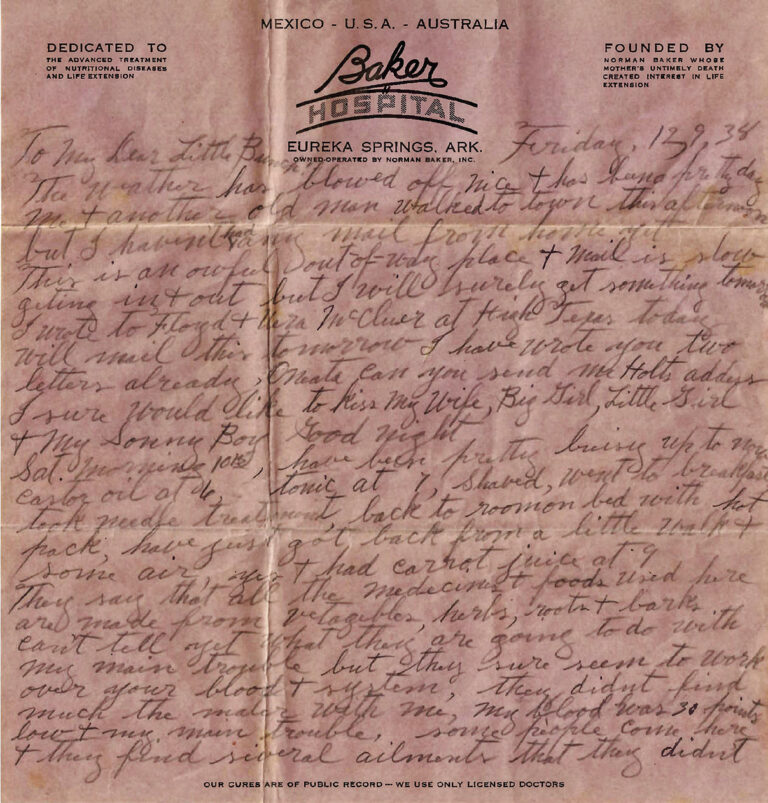 MEXICO - U.S.A. - AUSTRALIA
DEDICATED TO
THE ADVANCED TREATMENT
OF NUTRITIONAL DISEASES
AND LIFE EXTENSION
Baker
HOSPITAL
EUREKA SPRINGS, ARK.
OWNED-OPERATED BY NORMAN BAKER, INC.
FOUNDED BY
NORMAN BAKER WHOSE
MOTHER'S UNTIMELY DEATH
CREATED INTEREST IN LIFE
EXTENSION
Friday, 12, 9, 38
To My Dear Little Bunch
The weather has blowed off nice + has been pretty day
me + another old man walked to town this afternoon
but I haven't had any mail from home yet
This is an owful out-of-way place + mail is slow
geting in + out but I will surely get something tomorrow
I wrote to Floyd + Vera McCluer at High Texas today
will mail this tomorrow I have wrote you two
letters already, Oneata can you send me Holts address
I sure would like to kiss My Wife, Big Girl, Little Girl
+ My Sonny Boy Good night
Sat. morning 10 , have been pretty buisy up to now
castor oil at 6, tonic at 7, shaved, went to breakfast
took needle treatment, back to room on bed with hot
pack, have just got back from a little walk +
some air, + had carrot juice at 9
They say that all the medecines + foods used here
are made from vetagibles, herbs, roots + barks.
can't tell yet what they are going to do with
my main trouble but they sure seem to work
over your blood + system, they didnt find
much the mater with me, my blood was 30 points
low + my main trouble, some people come here
+ they find siveral ailments that they didnt
OUR CURES ARE OF PUBLIC RECORD — WE USE ONLY LICENSED DOCTORS